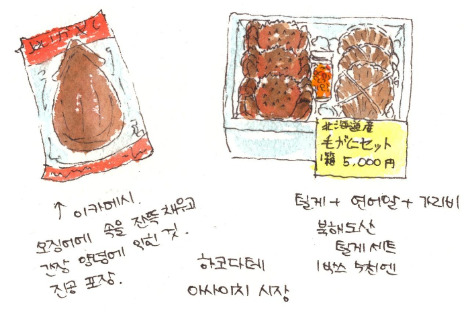 ↑ 이카메시.
오징어에 속을 잔뜩 채우고
간장 양념에 익힌 것.
진공 포장.
北海道産
毛がにセット
1箱 5,000円
털게 + 연어알 + 가리비
북해도산
털게 세트
1박스 5천엔
하코다테
아사이치 시장